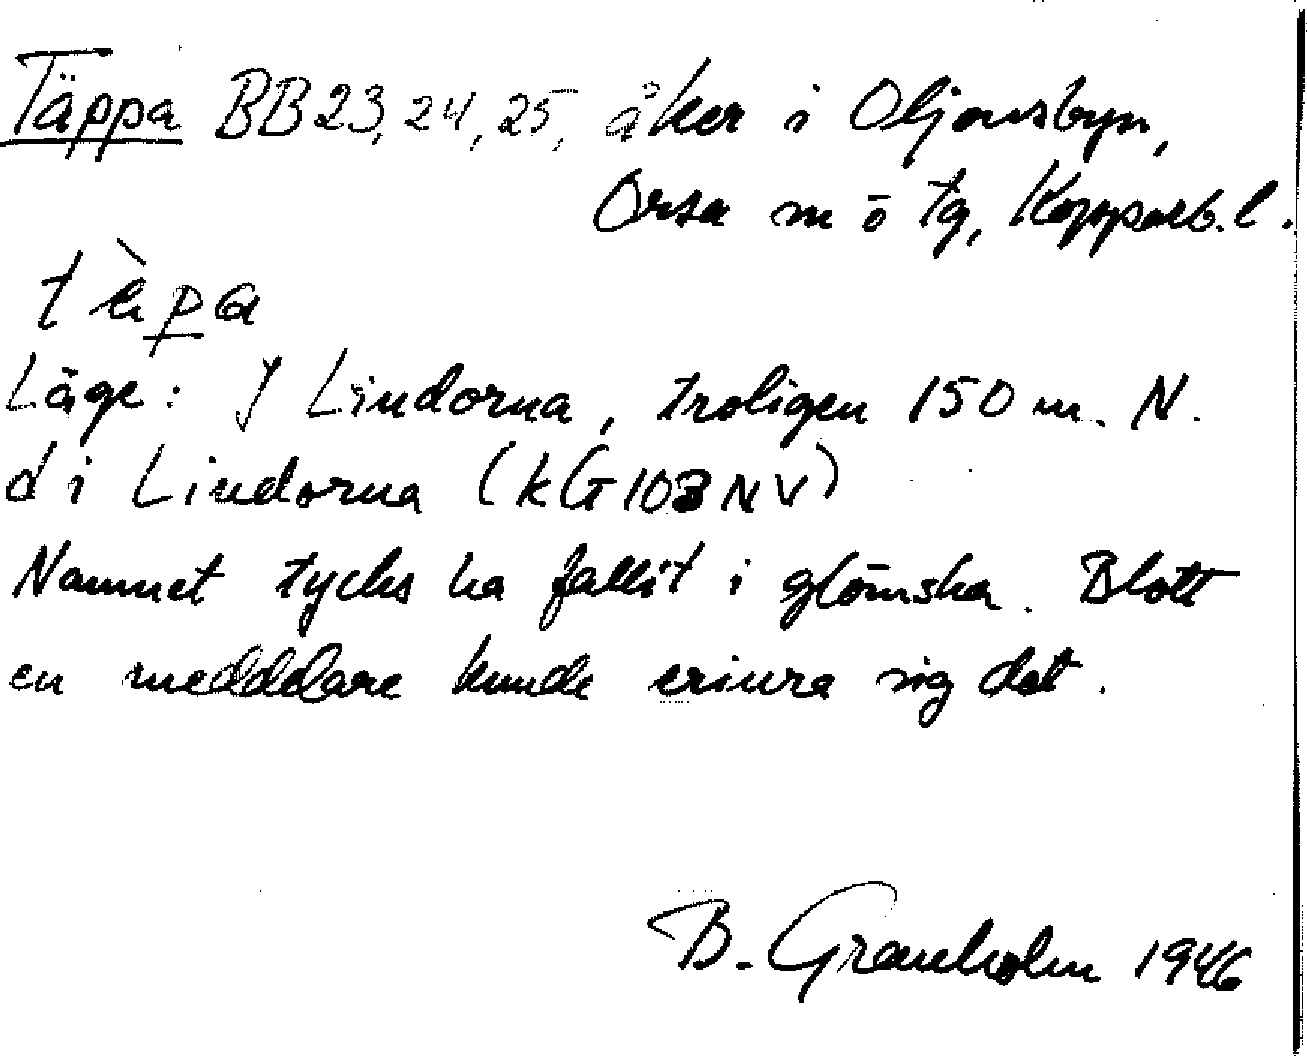 Täppa BB23, 24, 25, åker i Oljonsbyn,
Orsa sn ö tg, Kopparb. l.
tèpa
Läge: I Lindorna, troligen 150 m. N.
d i Lindorna (kG 103 NV)
Namnet tycks ha fallit i glömska. Blott
en meddelare kunde erinra sig det.
B. Granholm 1946